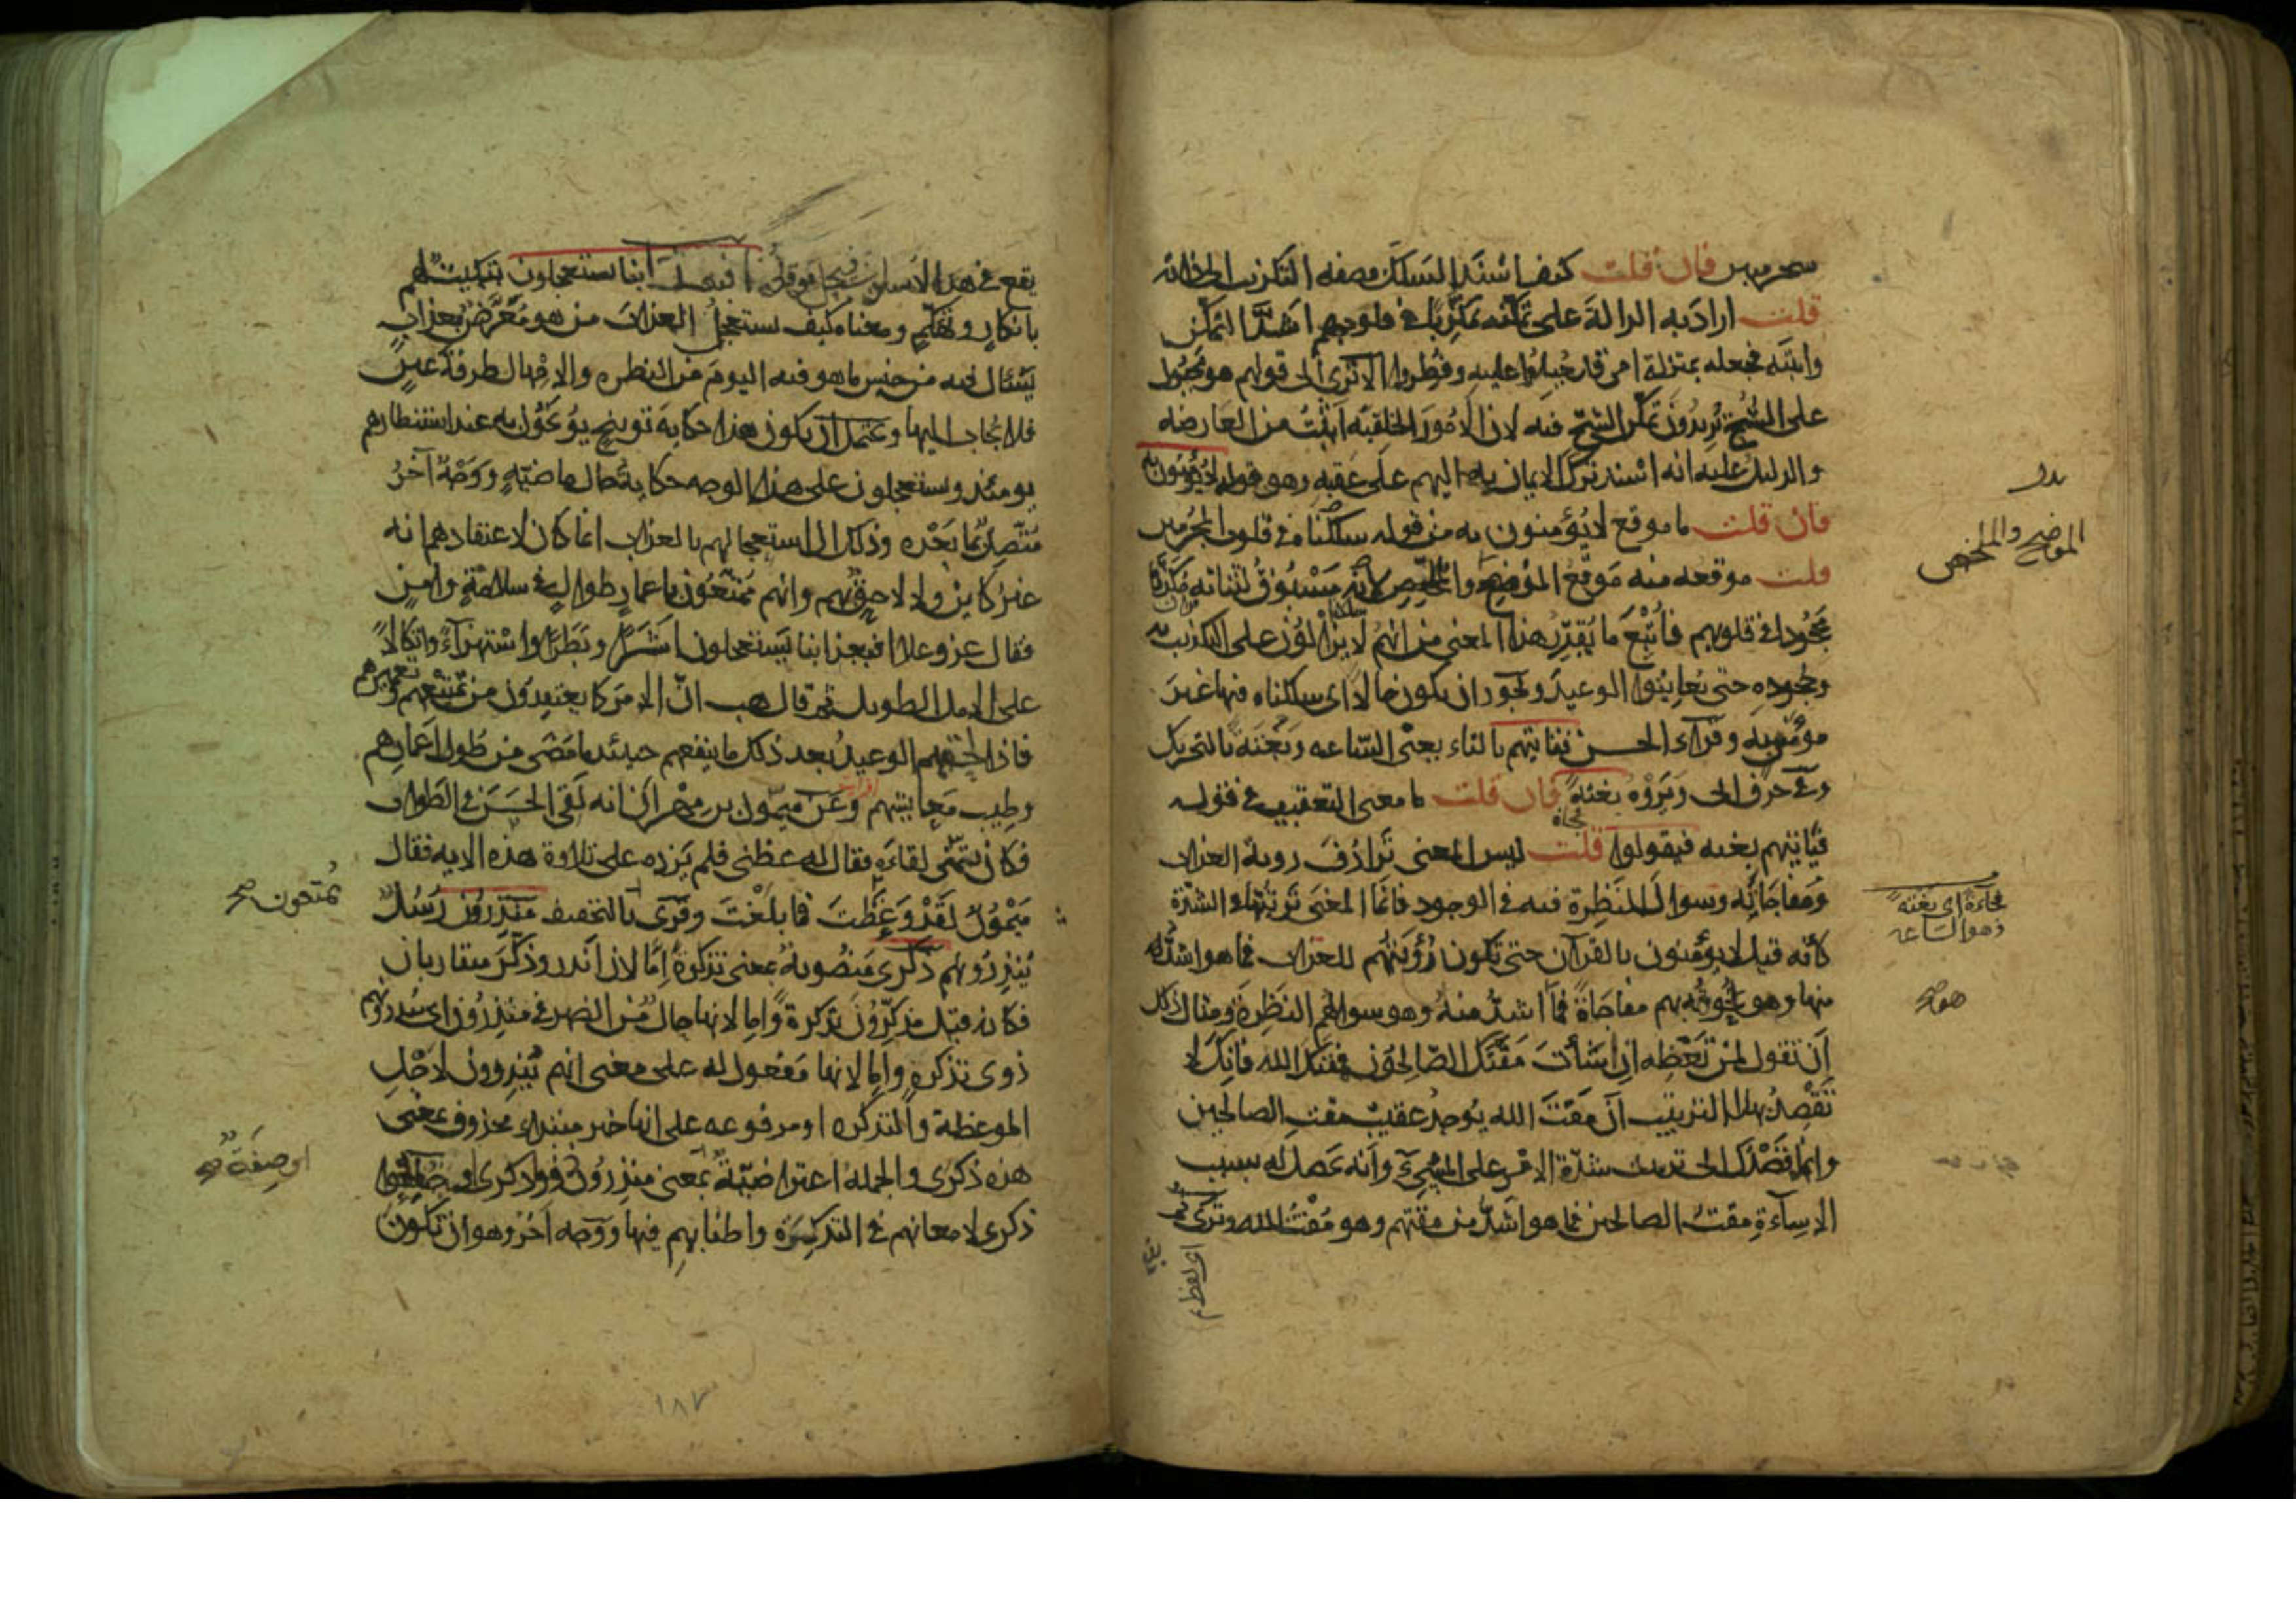 فان قلت كيف اسند السلك بصفة التكذيب الى ذاته
قلت اراد به الدلالة على تمكنه مكذبا في قلوبهم اشد التمكن
واثبته فجعله بمنزلة امر قد جبلوا عليه وفطروا الا ترى الى قولهم هو مجبول
على الشح تريدون تمكن الشح فيه لان الامور الخلقية اثبت من العارضة
والدليل عليه انه اسند ترك الايمان به اليهم على عقبه وهو قوله لا يؤمنون به
فان قلت ما موقع لا يؤمنون به من قوله سلكناه في قلوب المجرمين
قلت موقعه منه موقع الموضح والملخص لانه مسوق لثباته مكذبا
مجحودا في قلوبهم فاتبع ما يقرر هذا المعنى من انهم لا يزالون على التكذيب به
وجحوده حتى يعاينوا الوعيد ويجوز ان يكون حالا اى سلكناه فيها غير
مؤمن به وقرأ الحسن فتأتيهم بالتاء يعنى الساعة وبغتة بالتحريك
وفى حرف ابى ويروه بغتة فان قلت ما معنى التعقيب في قوله
فيأتيهم بغتة فيقولوا قلت ليس المعنى ترادف روية العذاب
ومفاجاته وسوال النظرة فيه في الوجود فانما المعنى ترتيبها في الشدة
كأنه قيل لا يؤمنون بالقرآن حتى تكون رؤيتهم للعذاب فما هو اشد
منها وهو لحوقه بهم مفاجاة فما اشد منه وهو سوالهم النظرة ومثال ذلك
ان تقول لمن تعظه ان اسأت مقتك الصالحون فمقتك الله فانك لا
تقصد بهذا الترتيب ان مقت الله يوجد عقيب مقت الصالحين
وانما قصدك الى ترتيب شدة الامر على المسىء وانه يحصل له بسبب
الاساءة مقت الصالحين فما هو اشد من مقتهم وهو مقت الله وترى ثم
الموضح والملخص
فجاءة اى بغتة
وهو الساعة
يقع في هذا الاسلوب فيجل موقعه افبعذابنا يستعجلون تبكيت لهم
بانكار وتهكم ومعناه كيف يستعجل العذاب من هو معرض بعذاب
يسئال فيه من جنس ما هو فيه اليوم من النظرة والامهال طرفة عين
فلا يجاب اليها ويحتمل ان يكون هذا حكاية توبيخ يوبخون به عند استنظارهم
يومئذ ويستعجلون على هذا الوجه حكاية حال ماضية ووجه آخر
متصل بما بعده وذلك ان استعجالهم بالعذاب انما كان لاعتقادهم انه
غير كاين ولا لاحق بهم وانهم ممتعون باعمار طوال في سلامة وامن
فقال عز وعلا افبعذابنا يستعجلون اشرا وبطرا واستهزاء واتكالا
على الامل الطويل ثم قال هب ان الامر كما يعتقدون من تمتيعهم وتعميرهم
فاذا لحقهم الوعيد بعد ذلك ما ينفعهم حينئذ ما مضى من طول اعمارهم
وطيب معايشهم وعن ميمون بن مهران انه لقى الحسن في الطواف
فكان يتمنى لقاءه فقال له عظنى فلم يزده على تلاوة هذه الاية فقال
ميمون لقد وعظت فابلغت وقرى بالتخفيف منذرون رسل
ينذرونهم ذكرى منصوبة بمعنى تذكرة اما لان انذر وذكر متقاربان
فكانه قيل مذكرون تذكرة واما لانها حال من الضمير في منذرون اى ينذرونهم
ذوى تذكرة واما لانها مفعول له على معنى انهم ينذرون لاجل
الموعظة والتذكرة او مرفوعة على انها خبر مبتداء محذوف بمعنى
هذه ذكرى والجملة اعتراضية بمعنى منذرون ذوو ذكرى او جعلوا
ذكرى لامعانهم في التذكرة واطنابهم فيها ووجه آخر وهو ان تكون
يمتعون صح
او صفة صح
١٨٧